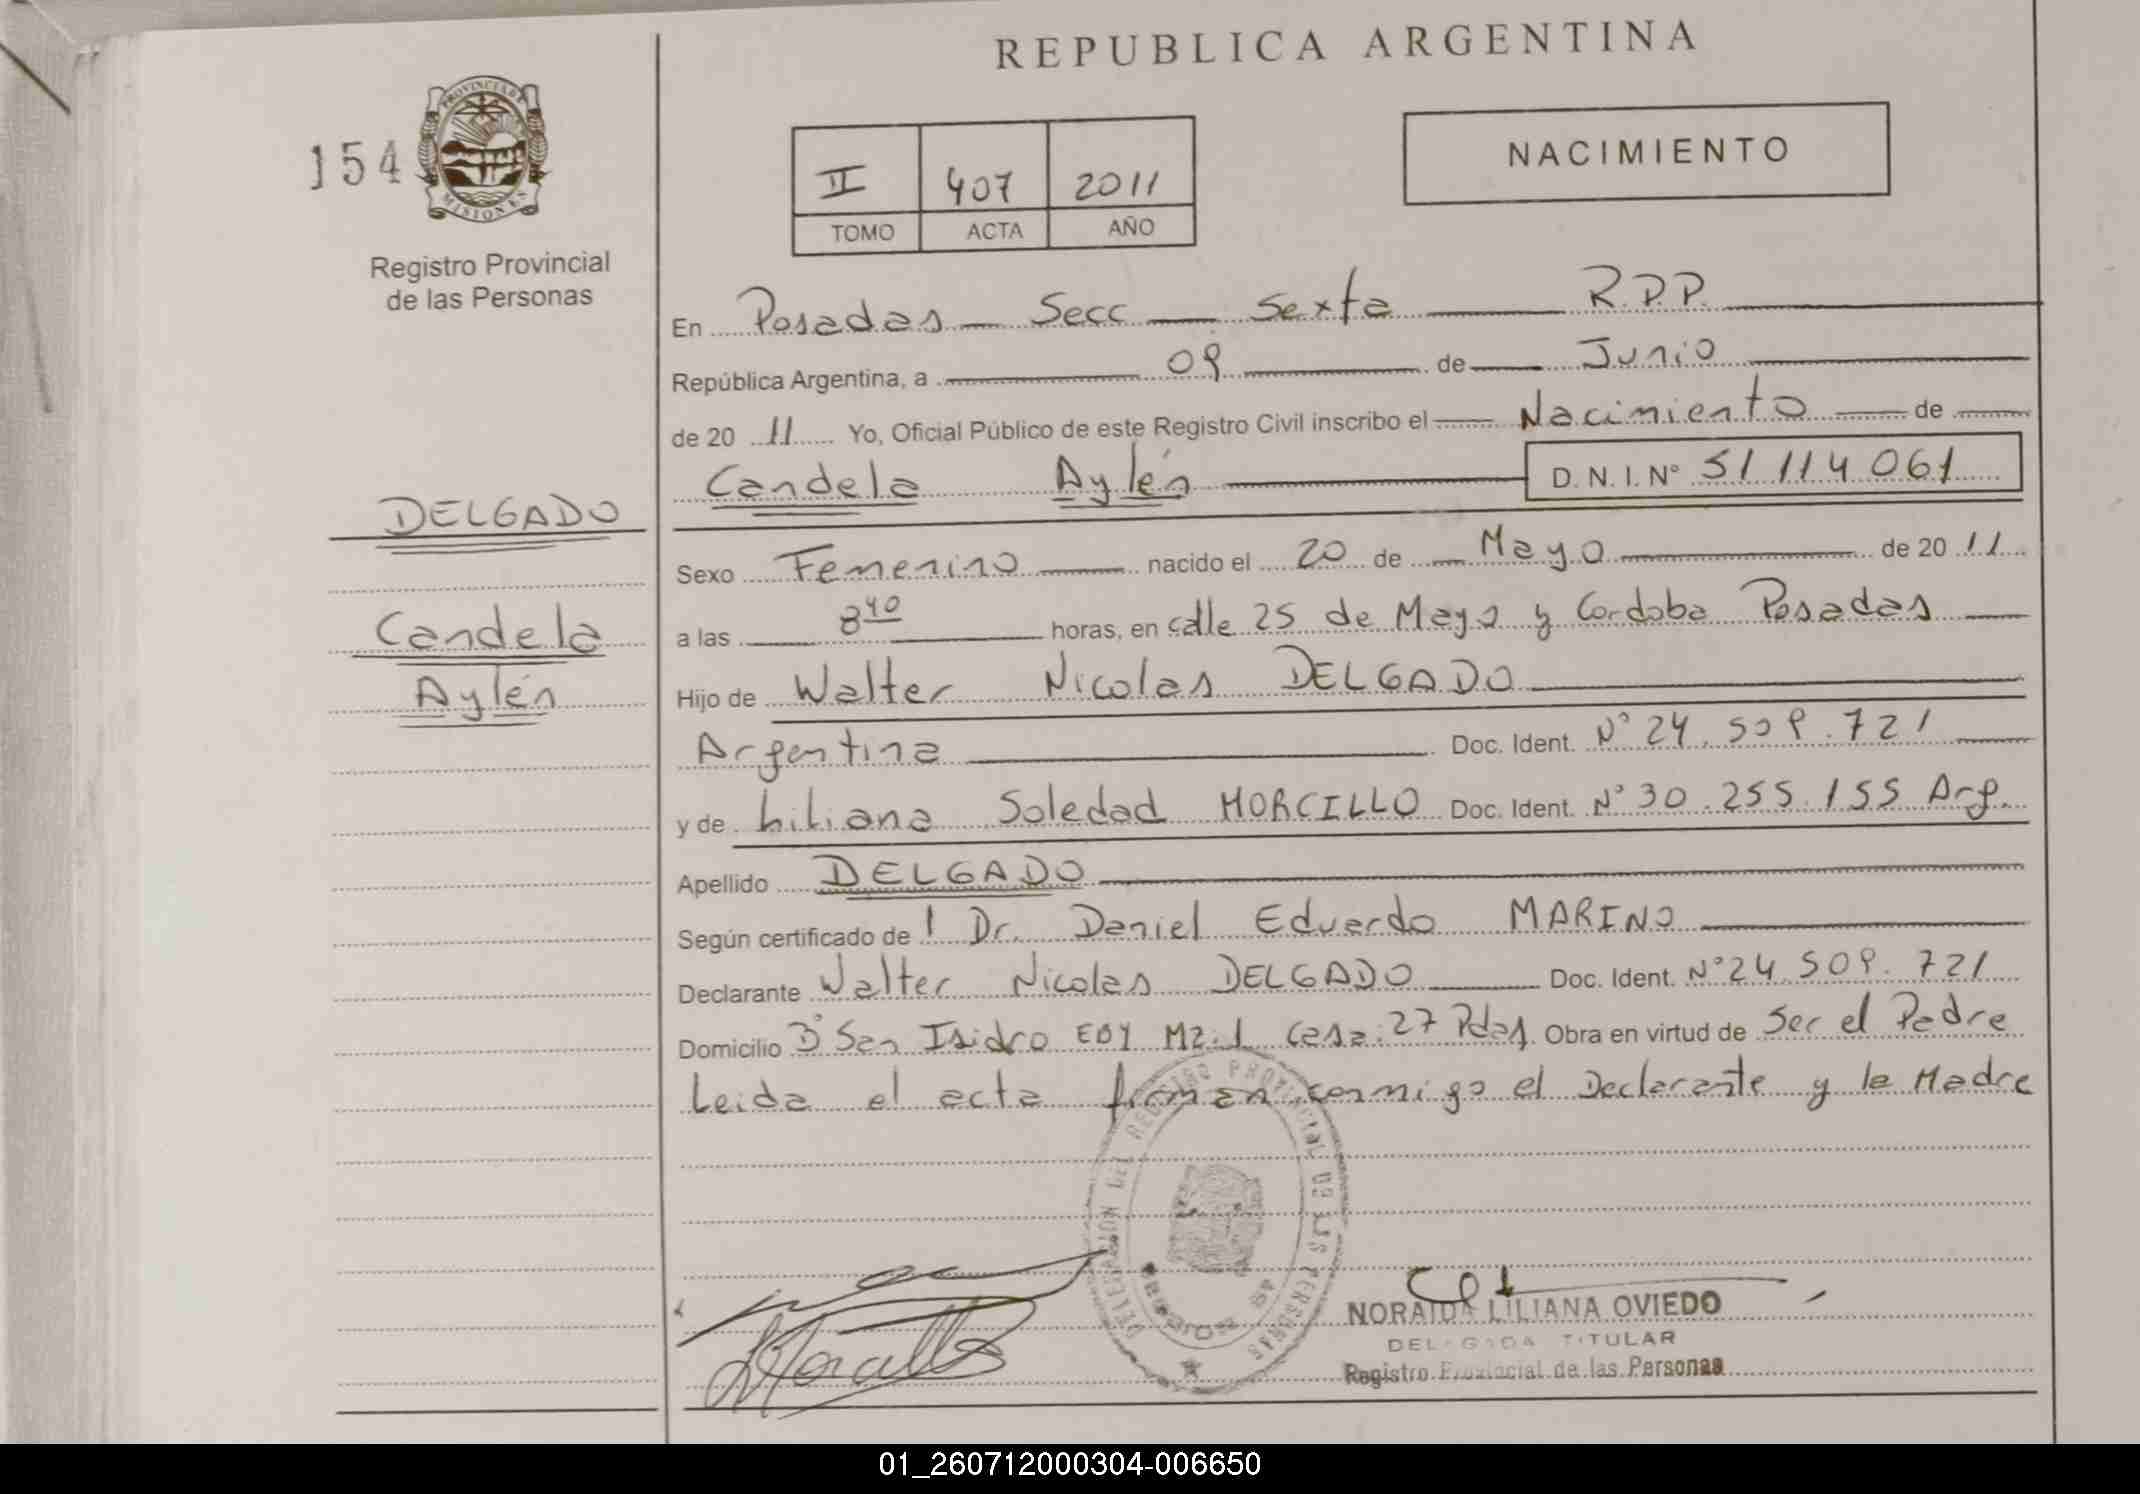 REPUBLICA ARGENTINA
154
PROVINCIA DE
MISIONES
Registro Provincial
de las Personas
II 407 2011
TOMO ACTA AÑO
NACIMIENTO
En Posadas Secc Sexta R.P.P.
República Argentina, a 09 de Junio
de 20 11 Yo, Oficial Público de este Registro Civil inscribo el Nacimiento de
Candela Aylén D. N. I. N° 51 114 061
DELGADO
Candela
Aylén
Sexo Femenino nacido el 20 de Mayo de 20 11
a las 8 40 horas, en calle 25 de Mayo y Cordoba Posadas
Hijo de Walter Nicolas DELGADO
Argentina Doc. Ident. N° 24.509.721
y de Liliana Soledad MORCILLO Doc. Ident. N° 30.255.155 Arg.
Apellido DELGADO
Según certificado de l Dr. Daniel Eduardo MARINO
Declarante Walter Nicolas DELGADO Doc. Ident. N° 24.509.721
Domicilio B° San Isidro Mz. 1 Casa: 27 Pdas. Obra en virtud de Ser el Padre
Leida el acta firman conmigo el Declarante y la Madre
DELEGACION DEL REGISTRO PROVINCIAL DE LAS PERSONAS
NORAIDA LILIANA OVIEDO
DELEGADA TITULAR
Registro Provincial de las Personas
01_260712000304-006650